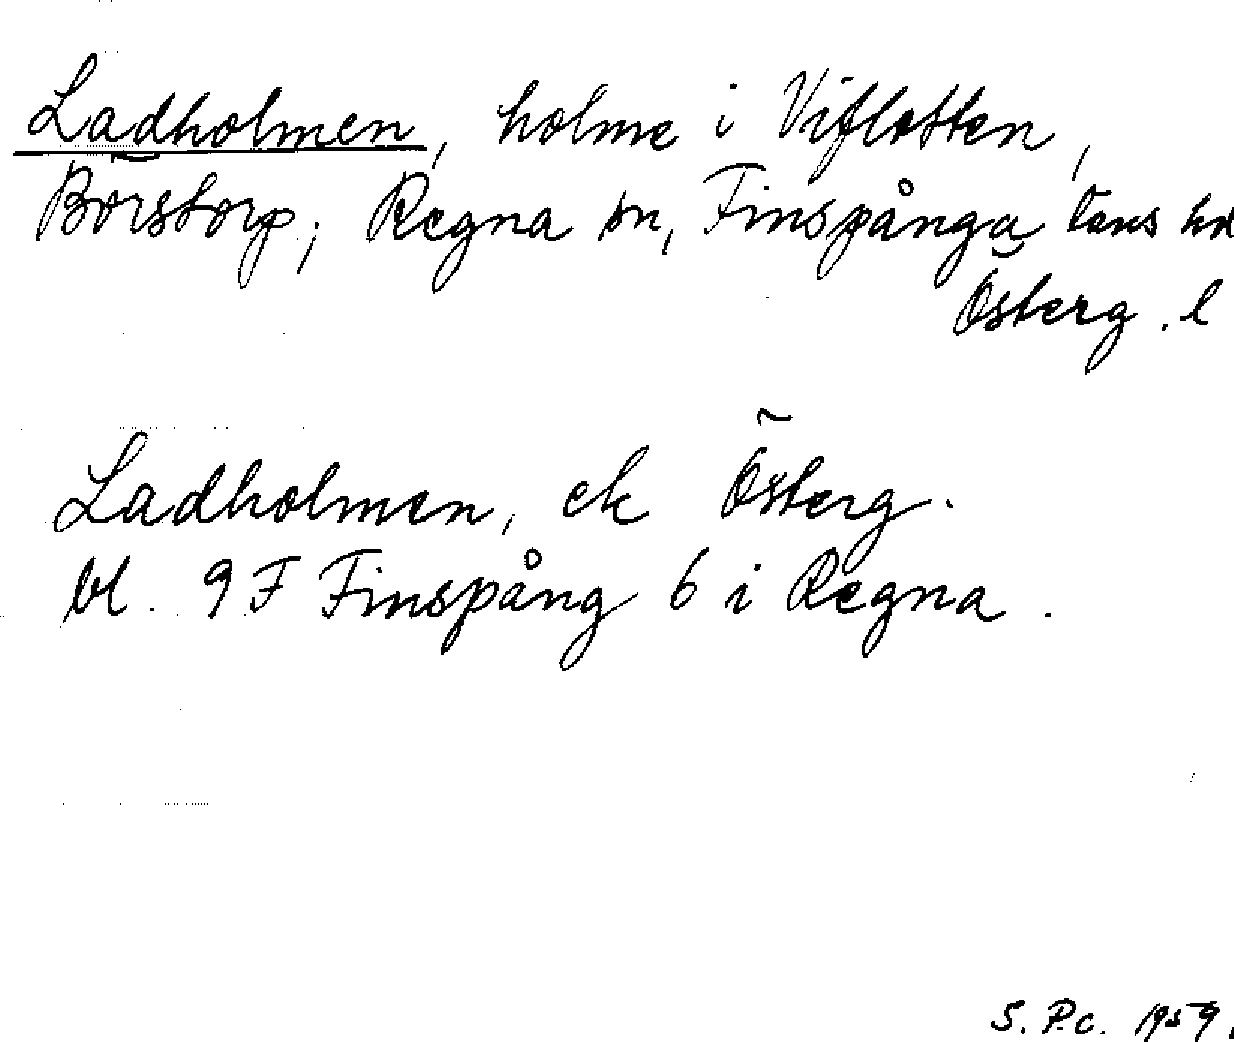 Ladholmen, holme i Viflotten,
Börstorp; Regna sn, Finspånga läns hd
Österg. l
Ladholmen, ek Österg.
bl. 9F Finspång 6 i Regna.
S. P.c. 1959.